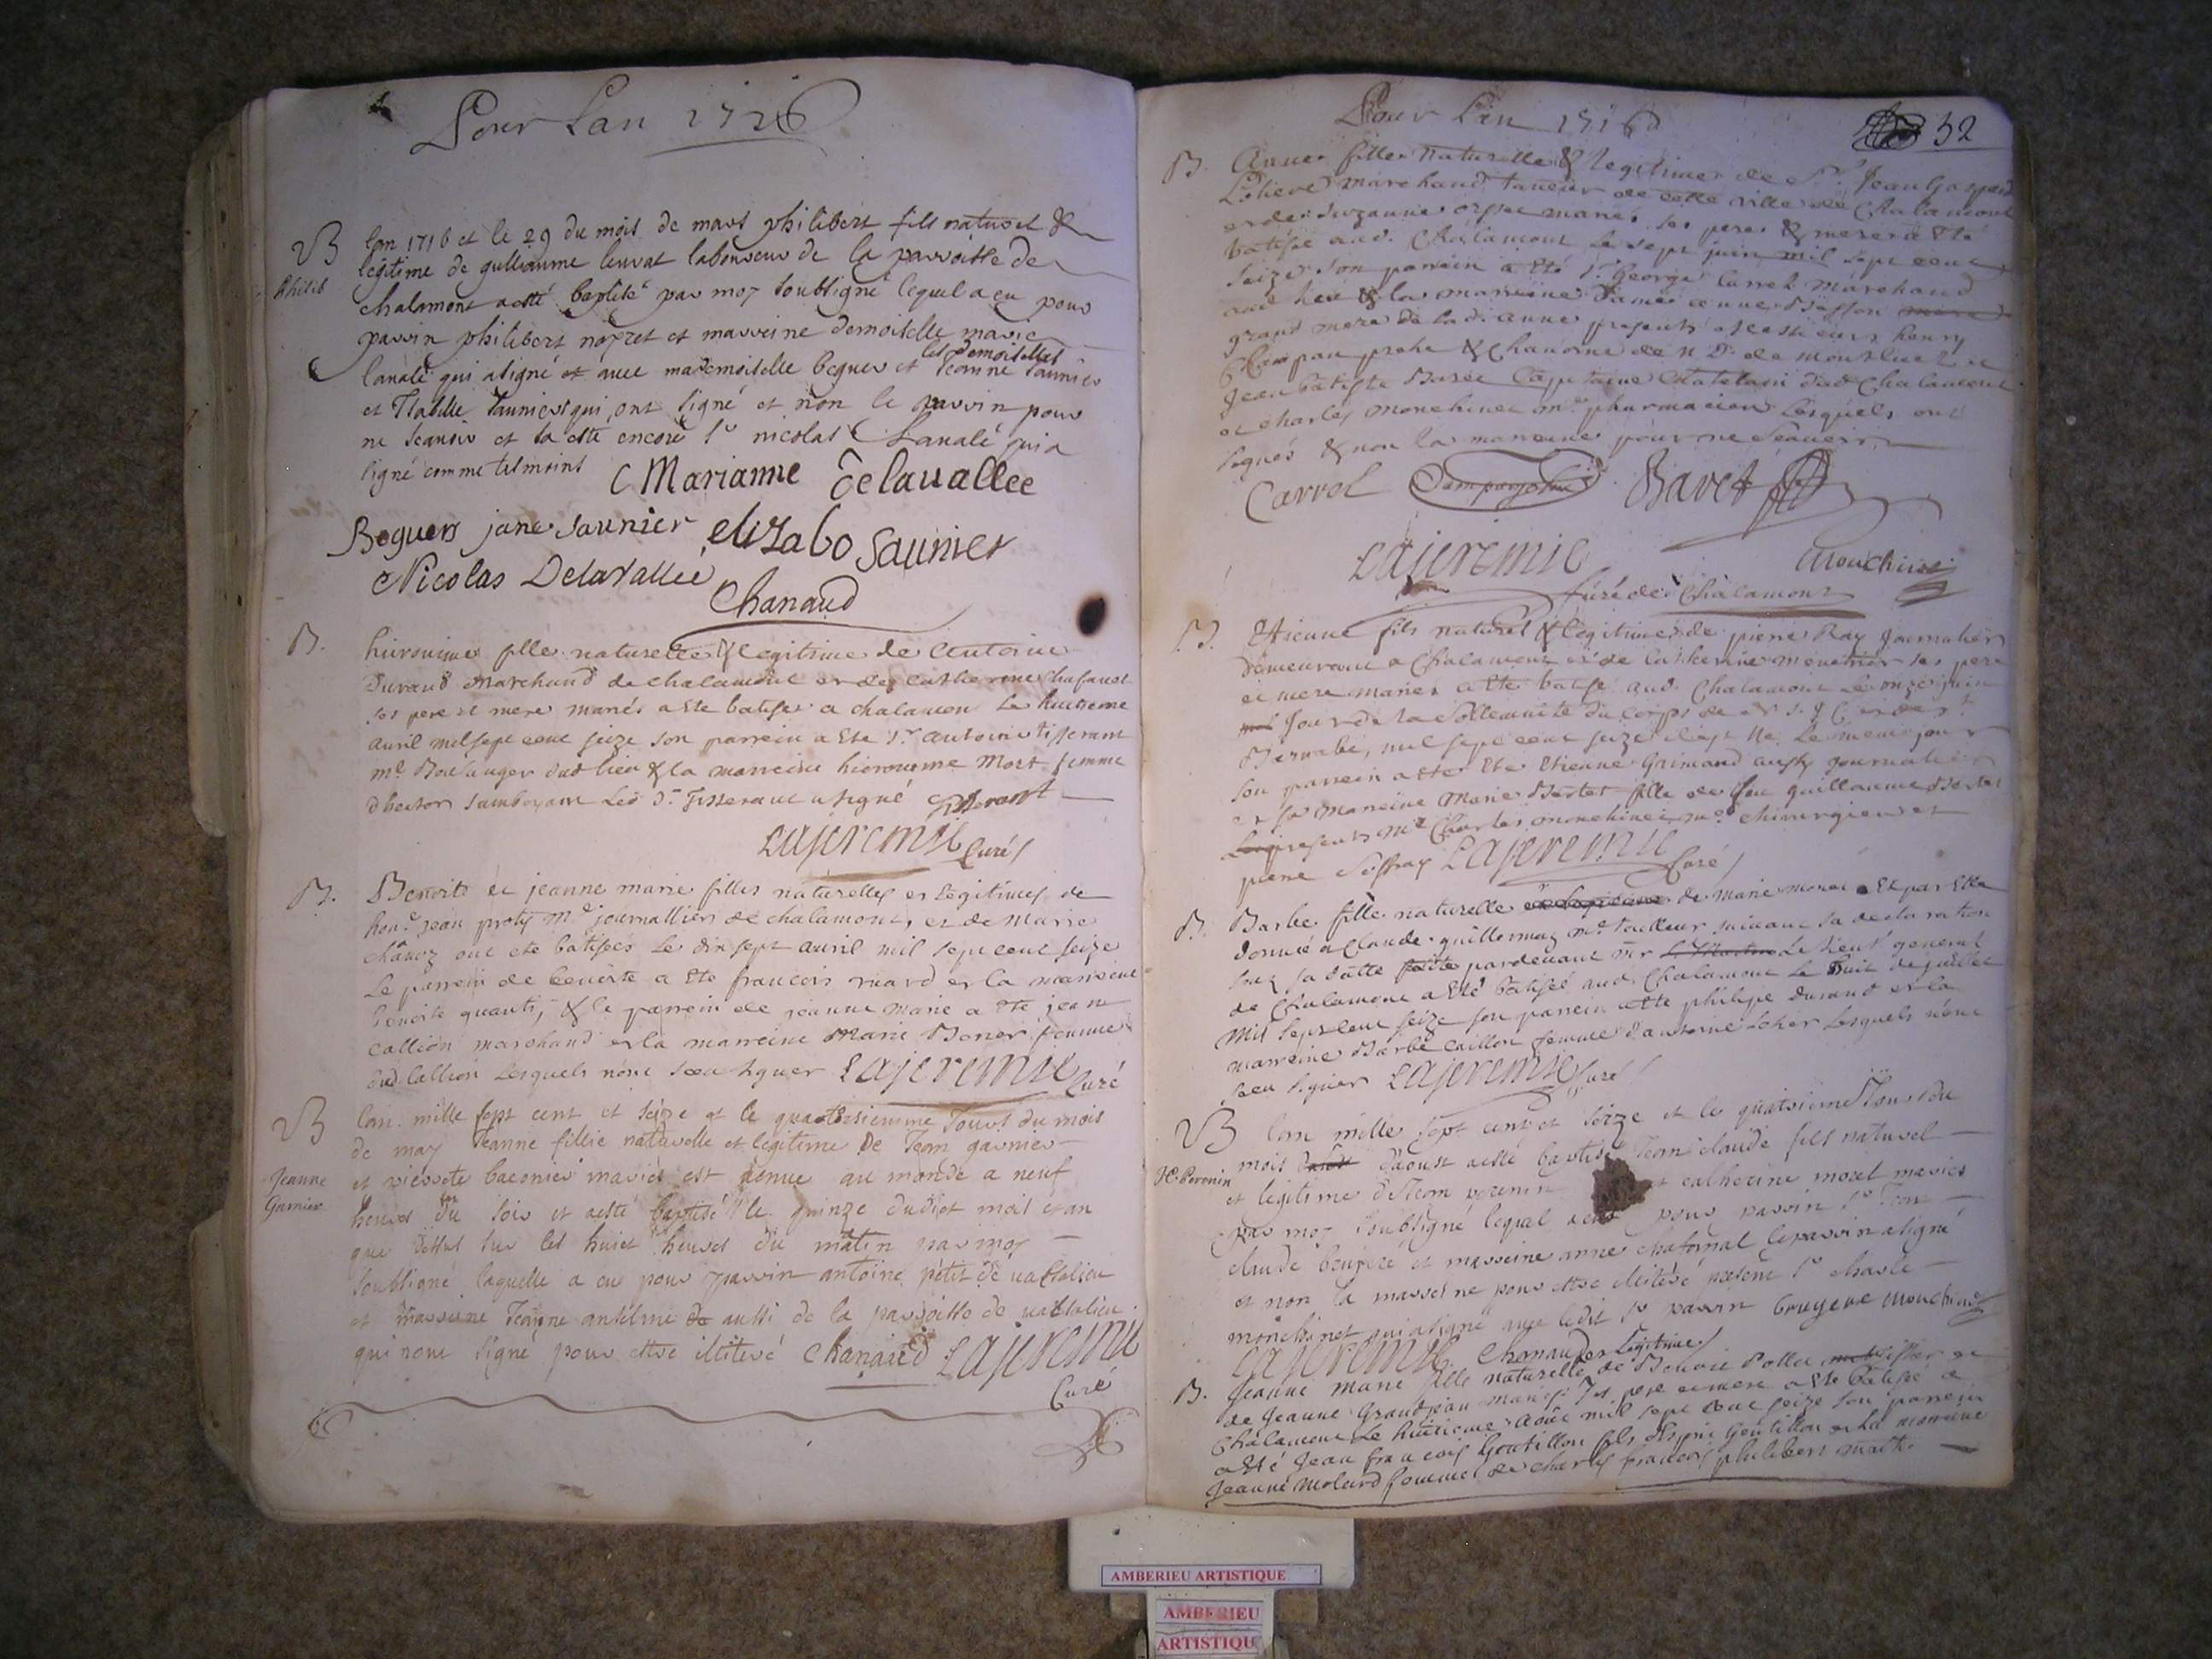 Pour Lan 1716
B
lan 1716 et le 29 du mois de mars philibert fils naturel &
Philib
legitime de gulliaume laboureur de la parroisse de
chalamont a esté baptisé par moy soubsigné lequel a eu pour
parrin philibert et marreine demoiselle marie
les demoiselles
lavalé qui a signé et avec mademoiselle beguer et Jeanne saunier
et Isabelle saunier qui ont signé et non le parrin pour
ne scavoir et sa esté encore sr nicolas Lavalé qui a
signé comme tesmoins Marianne Delauallee
Beguers jane saunier elizabo saunier
Nicolas Delavallee
Chanaud
B. hieronime fille naturelle & legitime de Antoine
Durand Marchand de chalamont et de catherine
ses pere et mere mariés a ete batisée a chalamon Le huitieme
avril mil sept cent seize son parrein a ete sr antoine tisserant
me Boulanger dud lieu & la marreine hieronime Mort femme
Led sr Tisserant a signé Tisserant
Lajeremie Curé
B. Benoite et jeanne marie filles naturelles et legitimes de
hon. jean proty me journallier de chalamont, et de Marie
chanoz ont ete batisés Le dix sept avril mil sept cent seize
Le parrein de benoite a ete francois et la marreine
benoite & le parrein de jeanne marie a ete jean
callion marchand et la marreine Marie femme
dud callion Lesquels n'ont sceu signer Lajeremie Curé
B lan mille sept cent et seize et le quatorsiemme Jours du mois
de may Jeanne fillie naturelle et legitime De Jean garnier
Jeanne
Garnier
et pierrote baconier maries est venue au monde a neuf
heures du soir et a esté baptisé le quinze dudict mois et an
que dessus sur les huict heures du matin par moy
soubsigné laquelle a eu pour parrin antoine petit de
et marreine Jeanne antelme aussi de la parroisse de
qui nont signé pour estre illiteré Chanaud Lajeremie
Curé
Pour Lan 1716
52
B. Anne fille naturelle & legitime de Sr. Jean Gaspard
Marchand Taneur de cette ville de Chalamont
et de suzanne mariés ses pere & mere a été
batisée aud. Chalamont Le sept juin mil sept cent
seize son parrein a été sr George Carrel marchand
aud lieu & la marreine Dame anne
grand mere de lad. anne presents messieurs henry
Campan pretre & chanoine de N. D. de montluel et
Jean batiste Baret Capitaine Chatelain dud Chalamont
et charles monchinet me pharmacien Lesquels ont
signés & non la marreine pour ne scavoir
Carrel Baret
Lajeremie Mouchinet
Curé de Chalamont
B. Etienne fils naturel & legitime de pierre Ray Journalier
demeurant a Chalamont et de catherine ses pere
et mere mariés a ete batisé aud. Chalamont Le onze juin
Jour de la sollemnité du corps de N. S. J. C. et de st
Barnabé, mil sept cent seize il est né Le meme jour
son parrein a ete Etienne Grimand aussy journalier
et sa marreine Marie Bertet fille de feu guillaume Bertet
presents me Charles monchinet me chirurgien et
piere Lajeremie Curé
B. Barbe fille naturelle de marie et par elle
donnée a Claude guillermoz me tailleur suivant sa declaration
pardevant mr Le Lieut general
de Chalamont a été batisée aud. Chalamont Le huit de juillet
mil sept cent seize son parrein a ete philipe durand et la
marreine Barbe caillon femme d'antoine Lesquels n'ont
sceu signer Lajeremie Curé
B lan mille sept cent et seizze et le quatrieme Jour du
mois daoust a esté baptisé Jean claude fils naturel
JC. Peronin
et legitime de Jean peronin et catherine morel maries
par moy soubsigné lequel a eu pour parrin sr Jean
claude bruyere et marreine anne le parrin a signé
et non la marreine pour estre illiteré present sr charle
monchinet qui a signé avec ledit sr parrin bruyere Mouchinet
Lajeremie Chanaud et Legitime
B. Jeanne marie fille naturelle de Benoit
de Jeanne Grandjean mariés ses pere et mere a ete batisée a
Chalamont Le huitieme Août mil sept cent seize son parrein
a été Jean francois Goutillon fils Goutillon et La marreine
Jeanne Molard femme de charles francois philibert
AMBERIEU ARTISTIQUE
AMBERIEU
ARTISTIQU